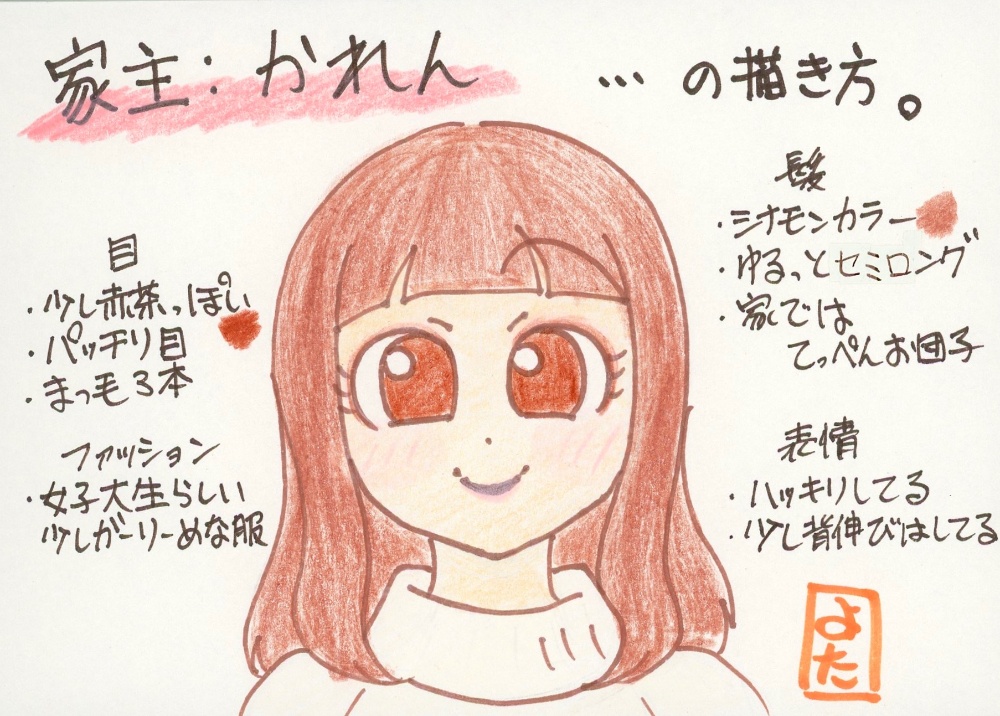 家主：かれん …の描き方。
目
・少し赤茶っぽい
・パッチリ目
・まつ毛3本
ファッション
・女子大生らしい
少しガーリーめな服
髪
・シナモンカラー
・ゆるっとセミロング
・家では
てっぺんお団子
表情
・ハッキリしてる
・少し背伸びはしてる
よた